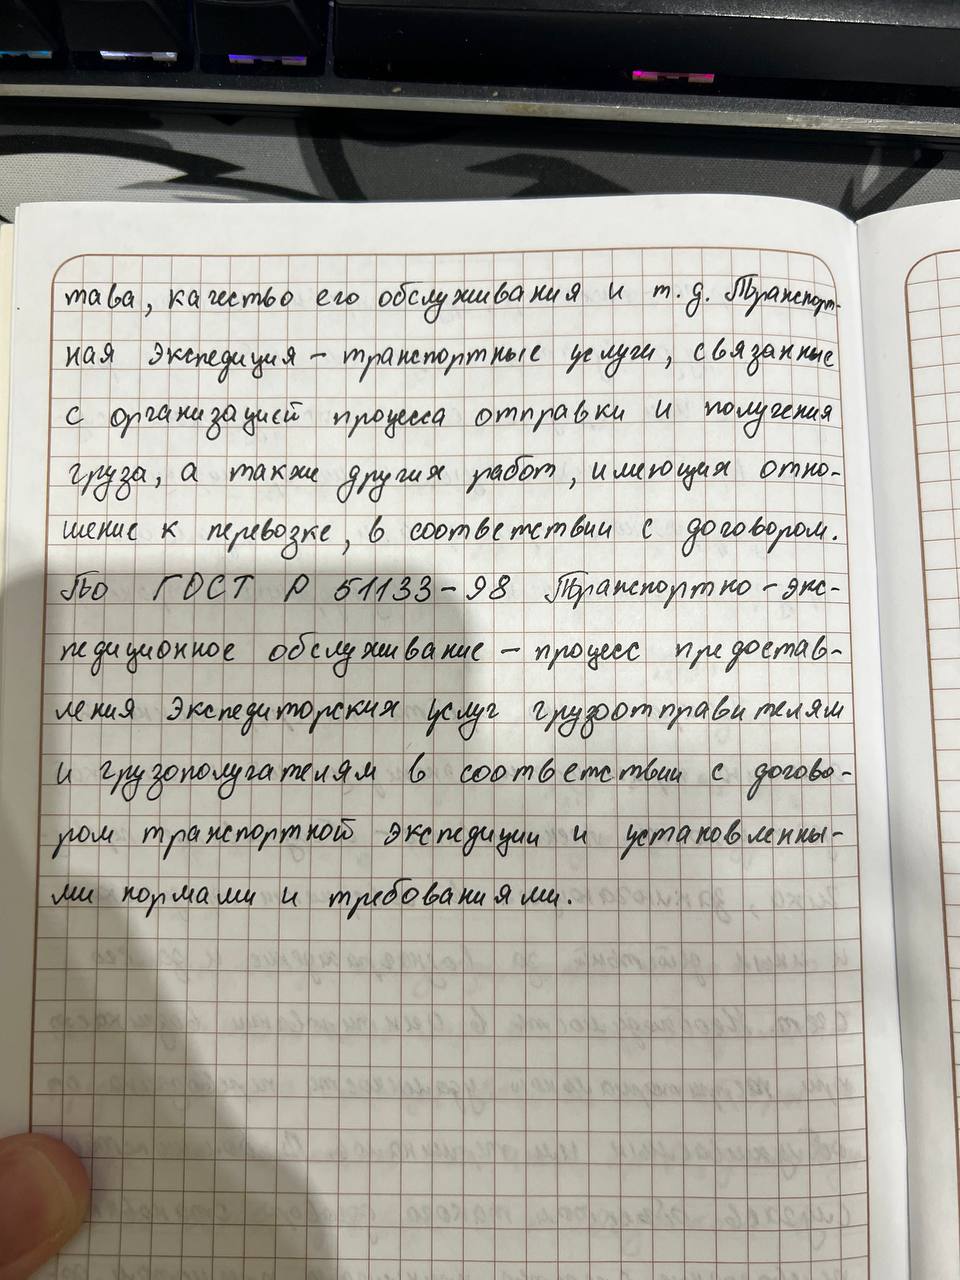 тава, качество его обслуживания и т.д. Транспорт-
ная экспедиция – транспортные услуги, связанные
с организацией процесса отправки и получения
груза, а также других работ, имеющих отно-
шение к перевозке, в соответствии с договором.
По ГОСТ Р 51133-98 Транспортно-экс-
педиционное обслуживание – процесс предостав-
ления экспедиторских услуг грузоотправителям
и грузополучателям в соответствии с догово-
ром транспортной экспедиции и установленны-
ми нормами и требованиями.